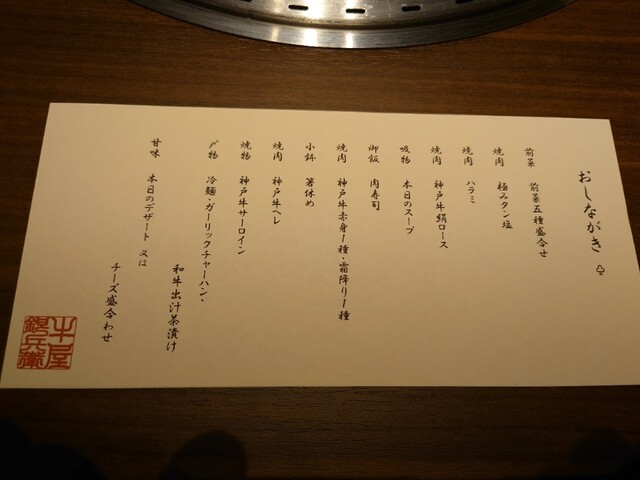 おしながき
前菜 前菜五種盛合せ
焼肉 極みタン塩
焼肉 ハラミ
焼肉 神戸牛絹ロース
吸物 本日のスープ
御飯 肉寿司
焼肉 神戸牛赤身1種・霜降り1種
小鉢 箸休め
焼肉 神戸牛ヘレ
焼物 神戸牛サーロイン
〆物 冷麺・ガーリックチャーハン・
和牛出汁茶漬け
甘味 本日のデザート 又は
チーズ盛合わせ
牛屋
銀兵衛